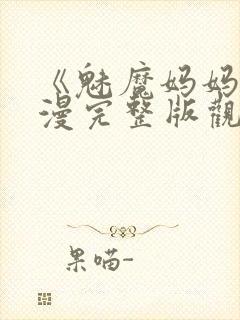 《魅魔妈妈
漫完整版觀
果喵-